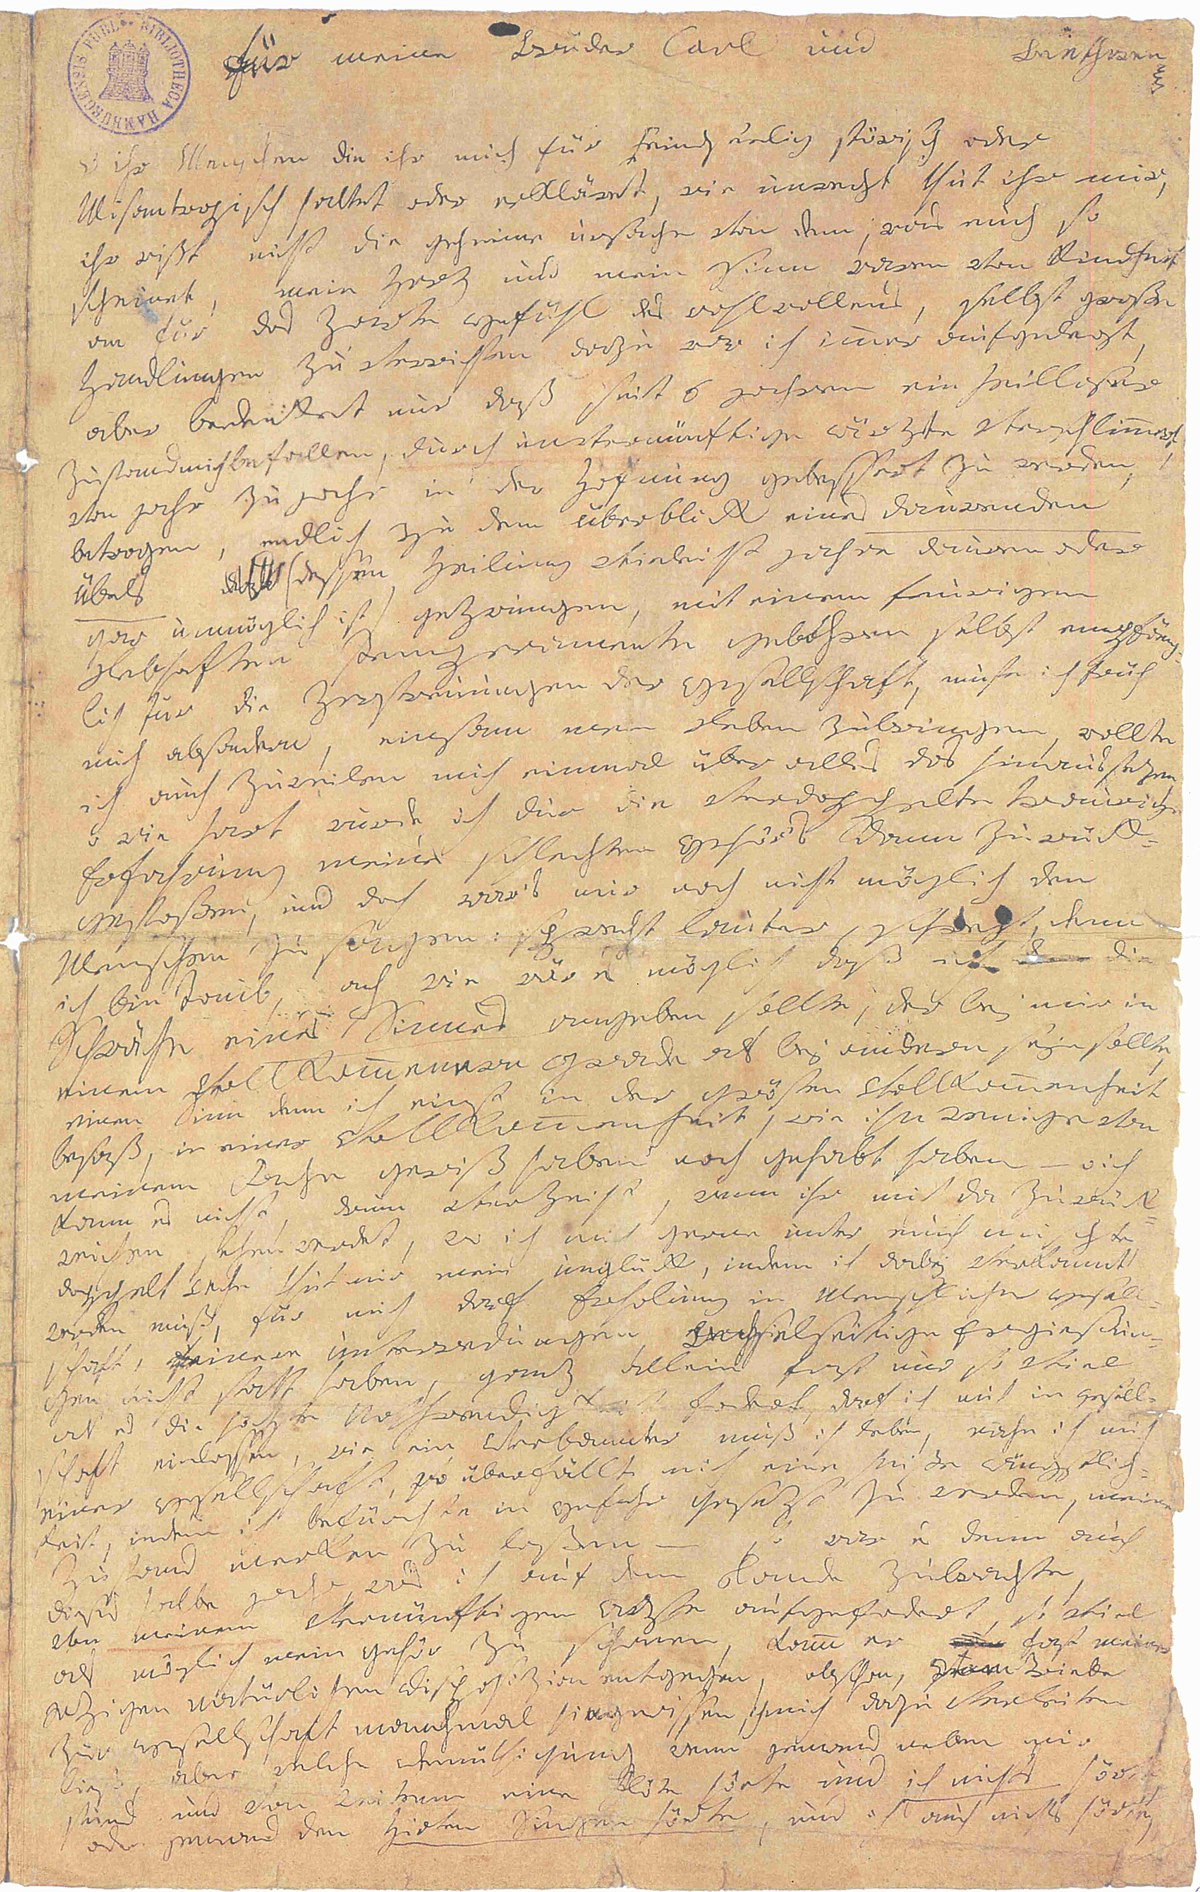 BIBLIOTHECA HAMBURGENSIS PUBL.
für meine Brüder Carl und Beethowen
o ihr Menschen die ihr mich für Feindseelig störisch oder
Misantropisch haltet oder erkläret, wie unrecht thut ihr mir,
ihr wißt nicht die geheime ursache von dem, was euch so
scheinet, mein Herz und mein Sinn waren von Kindheit
an für das Zarte gefühl des wohlwollens, selbst große
Handlungen zu verrichten dazu war ich imer aufgelegt,
aber bedenket nur daß seit 6 jahren ein heilloser
Zustand mich befallen, durch unvernünftige ärzte verschlimert,
von jahr zu jahr in der Hofnung gebessert zu werden,
betrogen, endlich zu dem überblick eines daurenden
übels (dessen Heilung vieleicht jahre dauren oder
gar unmöglich ist) gezwungen, mit einem feurigen
Lebhaften Temperamente gebohren selbst empfäng-
lich für die Zerstreuungen der gesellschaft, muste ich früh
mich absondern, einsam mein Leben zubringen, wollte
ich auch zuweilen mich einmal über alles das hinaussezen,
o wie hart wurde ich dur die verdoppelte traurige
Erfahrung meines schlechten gehör's dann zurück-
gestoßen, und doch war's mir noch nicht möglich den
Menschen zu sagen: sprecht lauter, schreyt, denn
ich bin taub, ach wie wär es möglich daß ich die
Schwäche eines Sinnes angeben sollte, der bey mir in
einem vollkommenern grade als bey andern seyn sollte,
einen Sinn denn ich einst in der grösten vollkommenheit
besaß, in einer vollkommenheit, wie ihn wenige von
meinem Fache gewiß haben noch gehabt haben – o ich
kann es nicht, drum verzeiht, wenn ihr mich da zurück-
weichen sehen werdet, wo ich mich gerne unter euch mischte
doppelt wehe thut mir mein unglück, indem ich dabey verkannt
werden muß, für mich darf Erholung in Menschlicher gesell-
schaft, feinere unterredungen Wechselseitige Ergießun-
gen nicht statt haben, ganz allein fast nur so viel
als es die höchste Nothwendigkeit fodert, darf ich mich in gesell-
schaft einlassen, wie ein Verbannter muß ich leben, nahe ich mich
einer gesellschaft, so überfällt mich eine heiße ängstlich-
keit, indem ich befürchte in gefahr gesezt zu werden, meinen
Zustand merken zu laßen – so war es denn auch
dieses halbe jahr, was ich auf dem Lande zubrachte,
von meinem vernünftigen Arzte aufgefodert, so viel
als möglich mein gehör zu schonen, kamm er fast meiner
jezigen natürlichen Disposizion entgegen, obschon, Vom Triebe
zur gesellschaft manchmal hingerissen, ich mich dazu verleiten
ließ, aber welche Demüthigung wenn jemand neben mir
stund und von weitem eine Flöte hörte und ich nichts hörte,
oder jemand den Hirten Singen hörte, und ich auch nichts hörte,